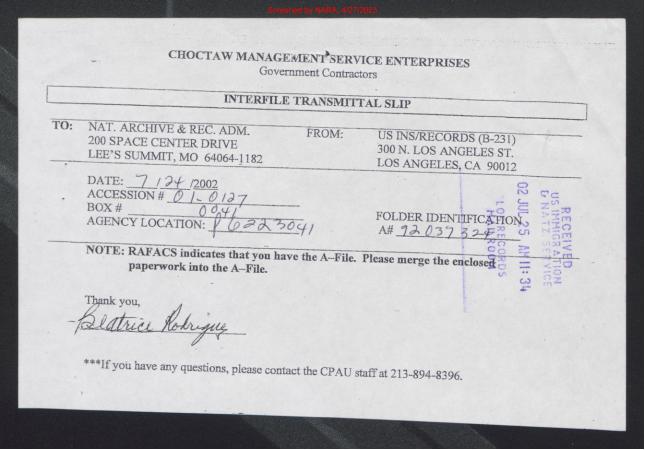 Screened by NARA, 4/27/2023
CHOCTAW MANAGEMENT SERVICE ENTERPRISES
Government Contractors
INTERFILE TRANSMITTAL SLIP
TO: NAT. ARCHIVE & REC. ADM.
200 SPACE CENTER DRIVE
LEE'S SUMMIT, MO 64064-1182
FROM: US INS/RECORDS (B-231)
300 N. LOS ANGELES ST.
LOS ANGELES, CA 90012
DATE: 7/24/2002
ACCESSION # 01-0127
BOX # 0041
AGENCY LOCATION: P6223041
FOLDER IDENTIFICATION
A# 92 037 324
RECEIVED
US IMMIGRATION
& NATZ SERVICE
02 JUL 25 AM 11:34
RECORDS
NOTE: RAFACS indicates that you have the A--File. Please merge the enclosed
paperwork into the A--File.
Thank you,
Beatrice Rodriguez
***If you have any questions, please contact the CPAU staff at 213-894-8396.